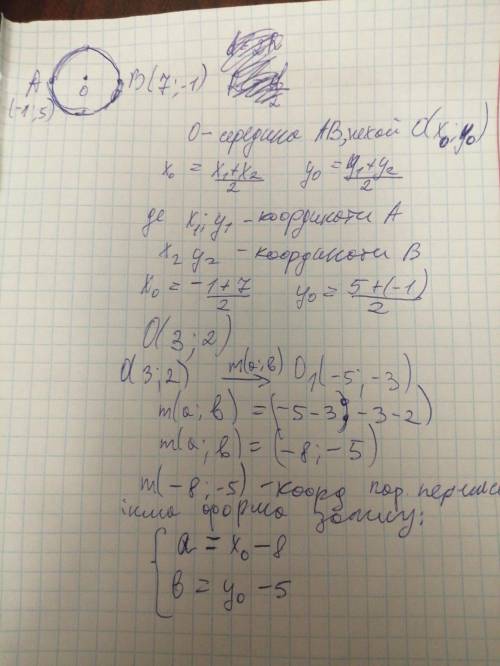 A B(7;-1)
(-1;5) O
O - середина AB, нехай O(x₀; y₀)
x₀ = (x₁+x₂)/2 y₀ = (y₁+y₂)/2
де x₁; y₁ - координати A
x₂ y₂ - координати B
x₀ = (-1+7)/2 y₀ = (5+(-1))/2
O(3;2)
O(3;2) m(a;в) → O₁(-5;-3)
m(a;в) = (-5-3; -3-2)
m(a;в) = (-8;-5)
m(-8;-5) - коорд пар.
інша форма запису:
{ a = x₀ - 8
в = y₀ - 5